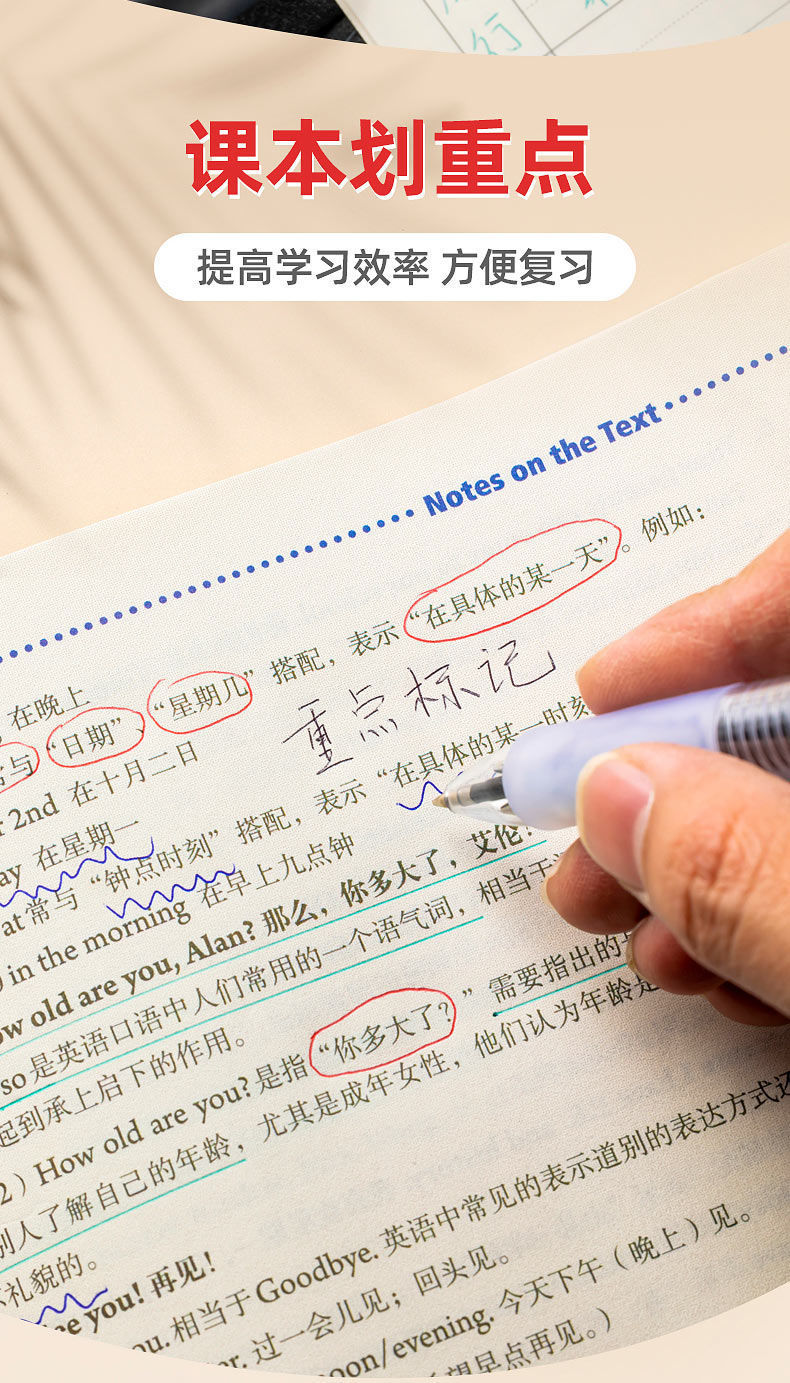 行
课本划重点
提高学习效率 方便复习
Notes on the Text
“在具体的某一天”。例如：
搭配，表示
, 在晚上
与“日期”、“星期几”
重点标记
2nd 在十月二日
“在具体的某一时刻
ay 在星期一
搭配，表示
at常与“钟点时刻”
in the morning 在早上九点钟
ow old are you, Alan? 那么，你多大了，艾伦？
so 是英语口语中人们常用的一个语气词，相当于
起到承上启下的作用。
2）How old are you? 是指“你多大了？” 需要指出的
别人了解自己的年龄，尤其是成年女性，他们认为年龄是
礼貌的。
ee you! 再见！
ou. 相当于 Goodbye. 英语中常见的表示道别的表达方式还
er. 过一会儿见；回头见。
noon/evening. 今天下午（晚上）见。
望早点再见。）